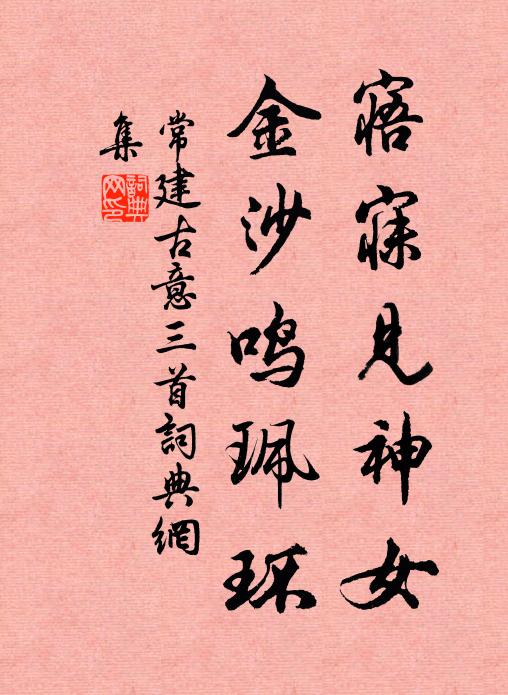 寤寐見神女
金沙鸣珮环
常建古意三首詞典網
集
詞典网印